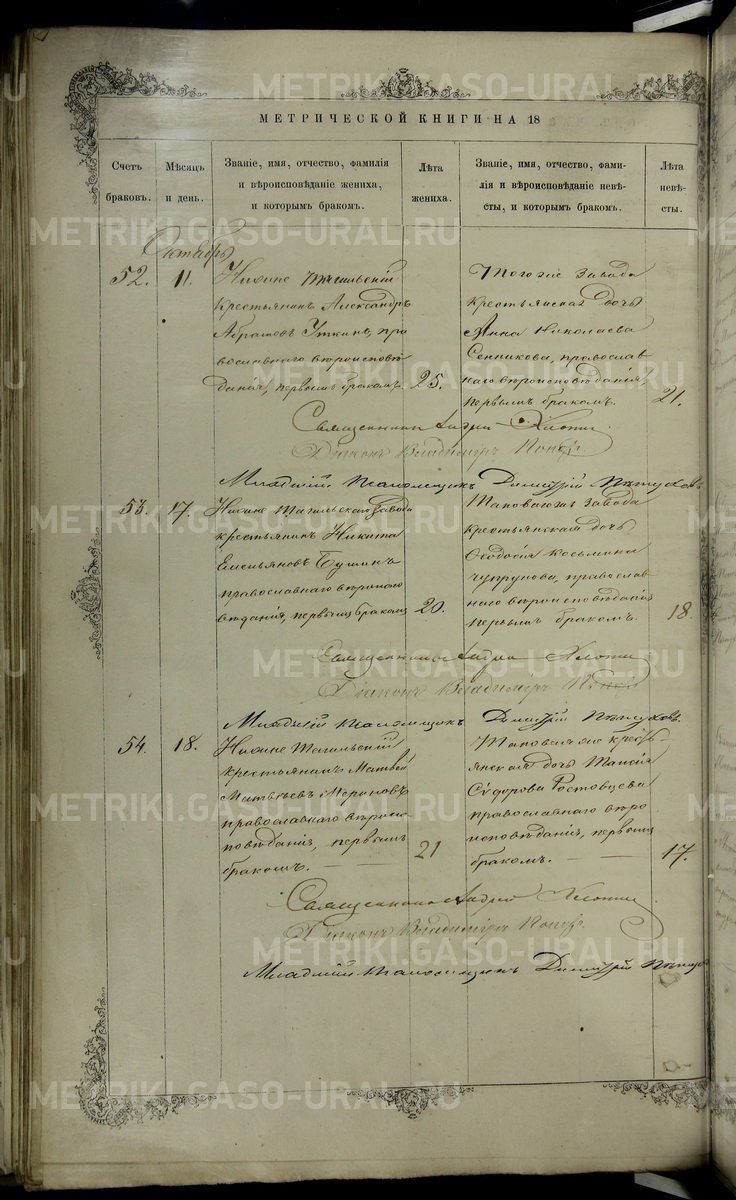 МЕТРИЧЕСКОЙ КНИГИ НА 18
Счетъ браковъ.
Мѣсяцъ и день.
Званіе, имя, отчество, фамилія
и вѣроисповѣданіе жениха,
и которымъ бракомъ.
Лѣта
жениха.
Званіе, имя, отчество, фами-
лія и вѣроисповѣданіе невѣ-
сты, и которымъ бракомъ.
Лѣта
невѣ-
сты.
Октябрь
52.
11.
Нижне Тагильскій
крестьянинъ Александръ
Абрамовъ Уткинъ, пра
вославнаго вѣроисповѣ
данія, первымъ бракомъ.
25.
Тогоже Завода
крестьянская дочь
Анна Николаева
Сенникова, православ
наго вѣроисповѣданія,
первымъ бракомъ.
21.
Священникъ Андрей
Діаконъ Владиміръ Поповъ
Младшій Псаломщикъ Димитрій Пѣтуховъ
53.
17.
Нижне Тагильскаго Завода
крестьянинъ Никита
Емельяновъ Бушинъ
православнаго вѣроиспо
вѣданія, первымъ бракомъ
20.
Таковагожъ Завода
крестьянская дочь
Ѳеодосія Косьмина
Чупрунова, православ
наго вѣроисповѣданія
первымъ бракомъ.
18.
Священникъ Андрей
Діаконъ Владиміръ Поповъ
Младшій Псаломщикъ Димитрій Пѣтуховъ
54.
18.
Нижне Тагильскій
крестьянинъ Матвѣй
Матвѣевъ Мероновъ
православнаго вѣроис
повѣданія, первымъ
бракомъ.
21
Таковаяже кресть
янская дочь Таисія
Сѵдорова Ростовцева
православнаго вѣро
исповѣданія, первымъ
бракомъ.
17.
Священникъ Андрей
Діаконъ Владиміръ Поповъ
Младшій Псаломщикъ Димитрій
METRIKI.GASO-URAL.RU